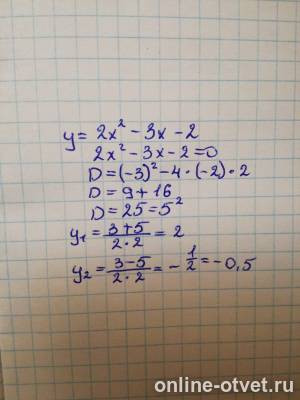 y = 2x² - 3x - 2
2x² - 3x - 2 = 0
D = (-3)² - 4 · (-2) · 2
D = 9 + 16
D = 25 = 5²
y₁ = (3+5)/(2·2) = 2
y₂ = (3-5)/(2·2) = -1/2 = -0,5
online-otvet.ru